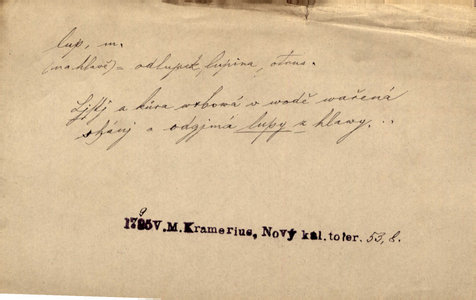 lup, m.
(na hlavě) = odlupek, lupina, otrus.
Ljstj a kůra wrbowá v wodě wařená
zhánj a odgjmá lupy z hlawy...
1795 V. M. Kramerius, Nový kal. toler. 53, 8.